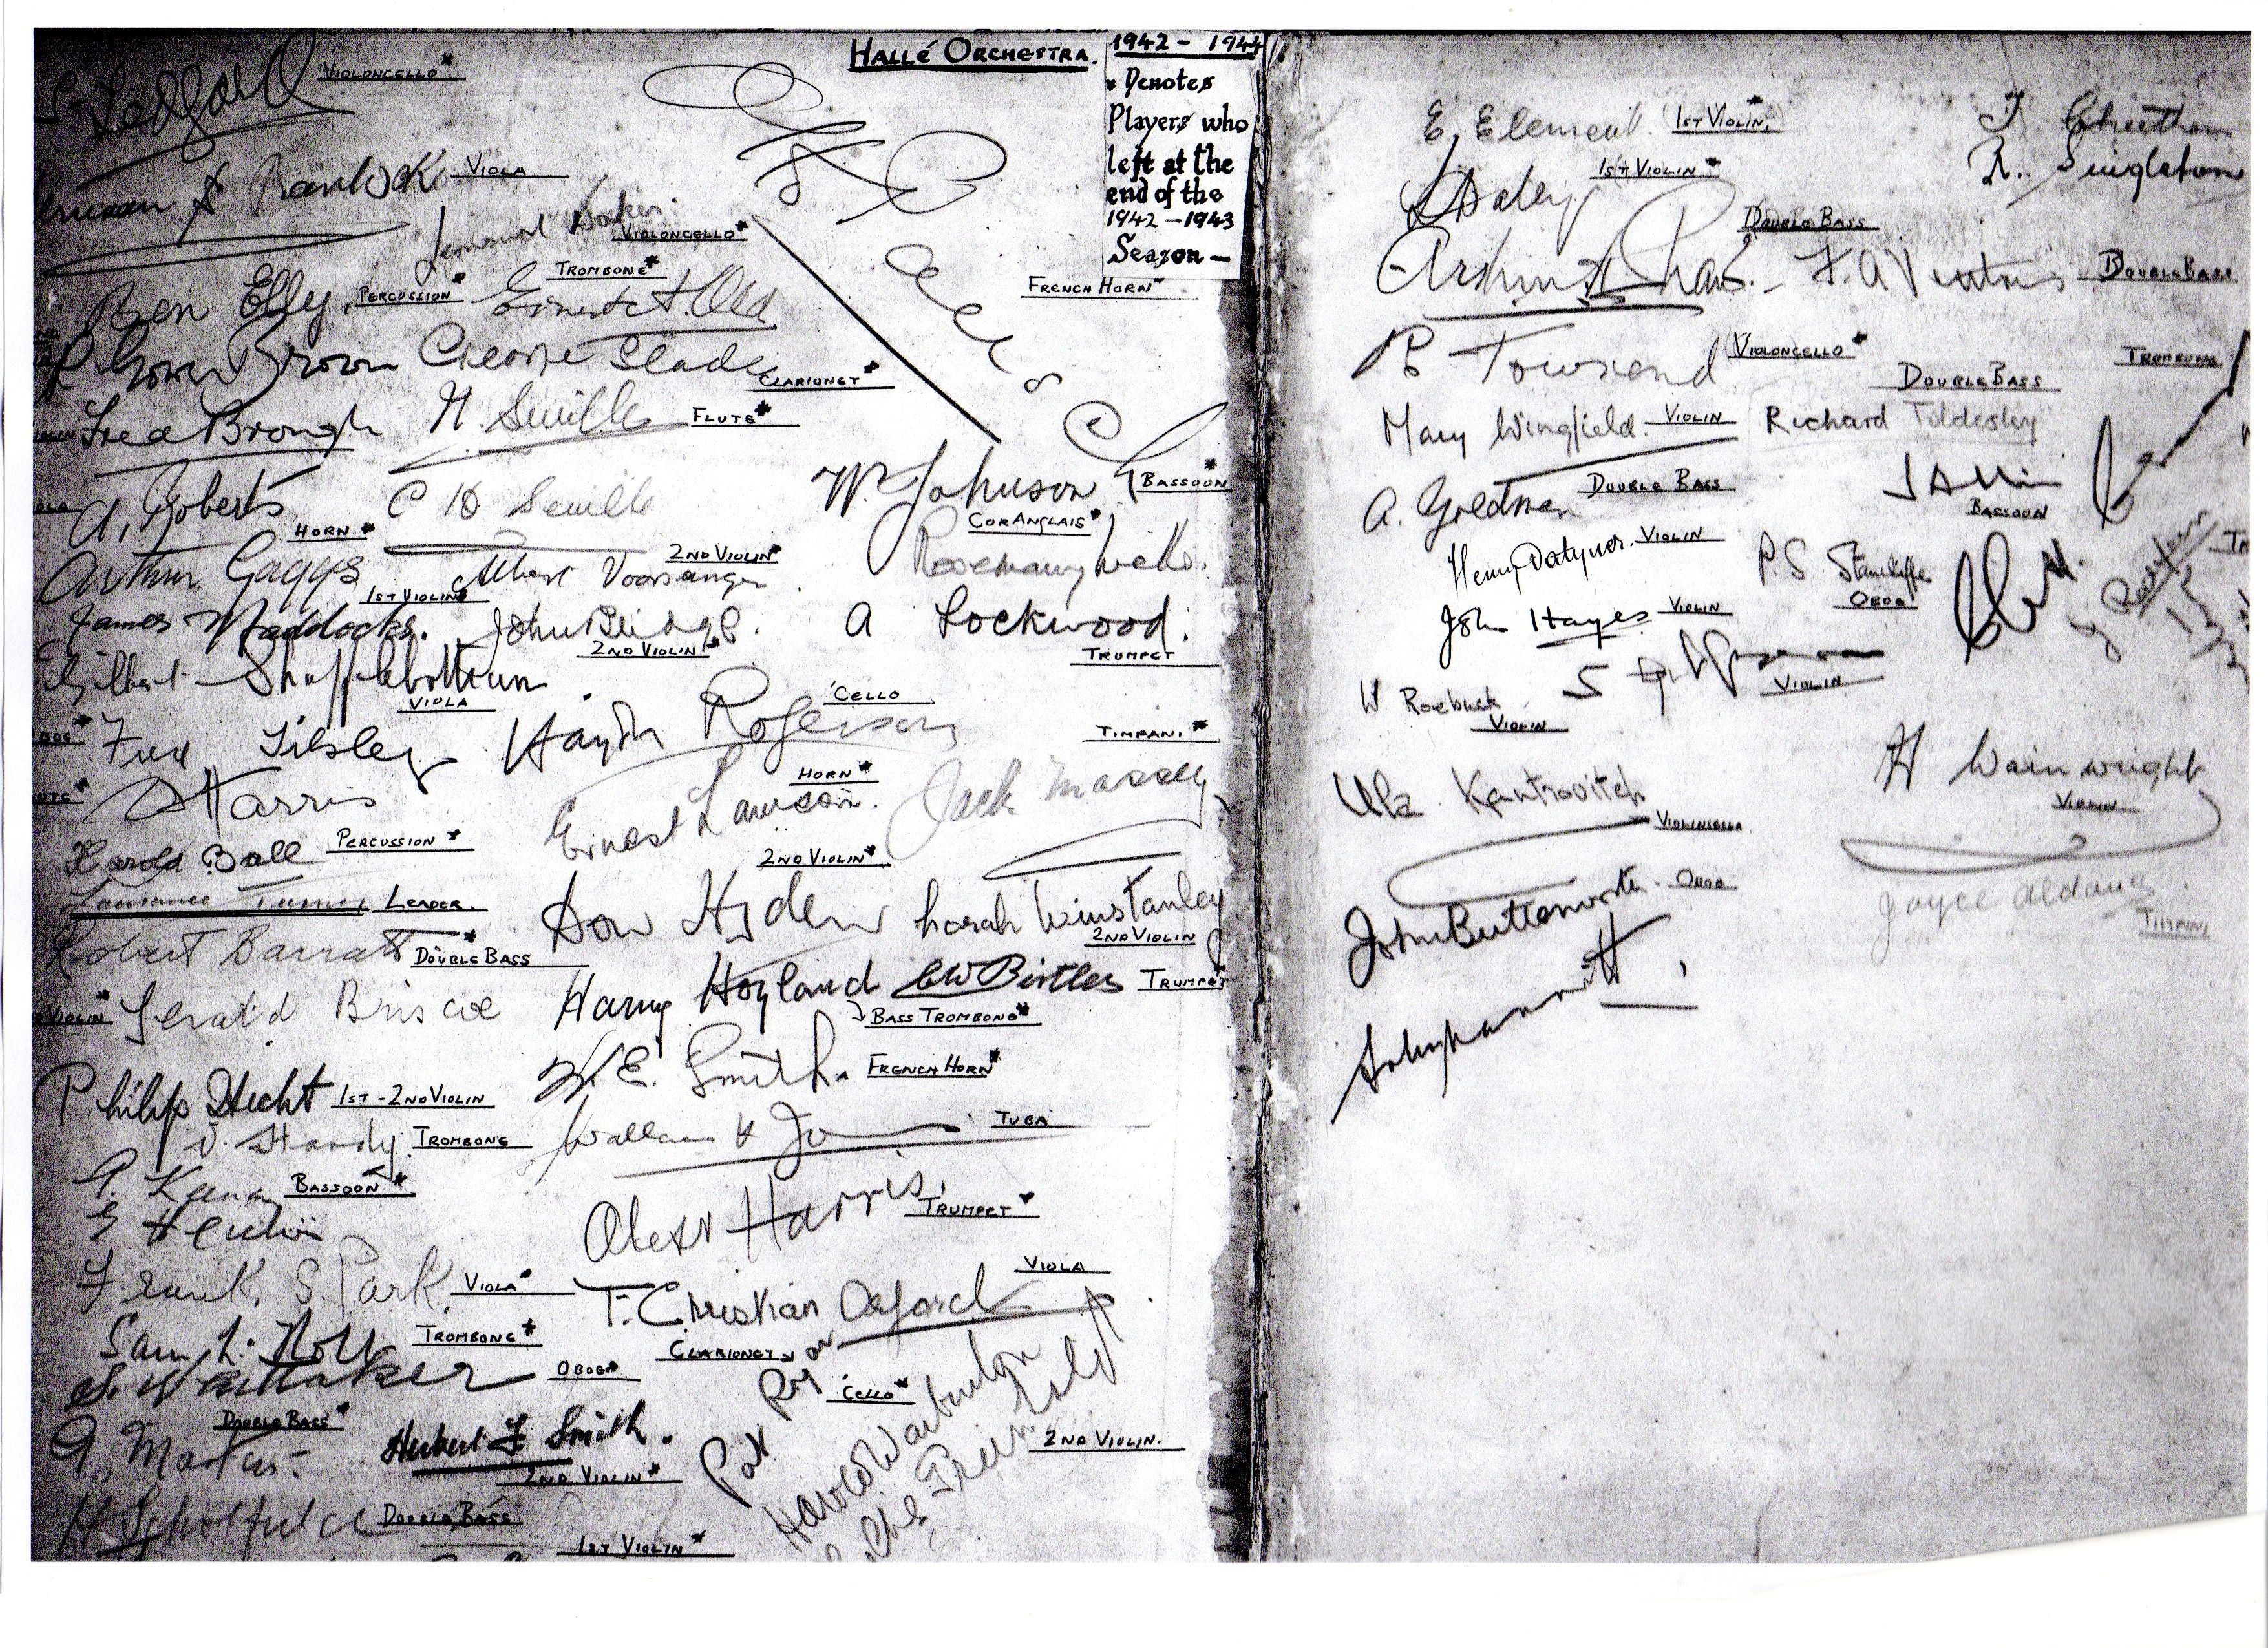 HALLÉ ORCHESTRA.
1942 - 1944
* Denotes
Players who
left at the
end of the
1942 - 1943
Season -
VIOLONCELLO*
VIOLA
VIOLONCELLO*
TROMBONE*
Ben Elly. PERCUSSION* Ernest A. Old
FRENCH HORN*
Brown George Slade
CLARIONET*
Fred Brough N. Seville FLUTE*
A. Roberts C D Seville
W. Johnson BASSOON*
HORN*
CORANGLAIS*
Arthur Gaggs
2ND VIOLIN*
Albert Voorsanger
Rosemary Wells.
1ST VIOLIN*
James Maddocks. John Bridge.
2ND VIOLIN*
A Lockwood.
TRUMPET
Gilbert Shufflebottom
VIOLA
'CELLO
Tilsley Haydn Rogerson
TIMPANI*
HORN*
Harris
Ernest Lawson. Jack Massey
Harold Ball PERCUSSION*
2ND VIOLIN*
Laurance Turner LEADER.
Don Hyden Norah Winstanley
2ND VIOLIN
Robert Barratt DOUBLE BASS*
VIOLIN* Gerald Briscoe
Harry Hoyland CW Birtles TRUMPET
BASS TROMBONE*
W. E. Smith. FRENCH HORN*
Philip Hecht 1ST - 2ND VIOLIN
TUBA
V. Hardy TROMBONE
A. Keenan BASSOON*
Alex Harris. TRUMPET*
Frank S. Park. VIOLA*
VIOLA
T. Christian Oxford
Sam L. Holt TROMBONE*
CLARIONET
Pat Ryan
S. Whittaker OBOE*
'CELLO*
Harold Warburton
DOUBLE BASS*
A. Martin. Herbert F Smith.
2ND VIOLIN*
2ND VIOLIN.
H Scholfield DOUBLE BASS
1ST VIOLIN*
E. Element. 1ST VIOLIN*
T. Cheetham
1ST VIOLIN*
R. Singleton
DOUBLE BASS
Arthur Shaw. - F. A Ventris DOUBLE BASS
P Townend VIOLONCELLO*
TROMBONE
DOUBLE BASS
Mary Wingfield. VIOLIN Richard Tildesley
A. Goldman DOUBLE BASS
BASSOON
Henry Datyner. VIOLIN
P. S. Stancliffe
OBOE
John Hayes VIOLIN
VIOLIN
W. Roebuck
VIOLIN
H Wainwright
VIOLIN
Kantrovitch
VIOLINCELLO
John Butterworth - OBOE
Joyce Aldous
TIMPANI